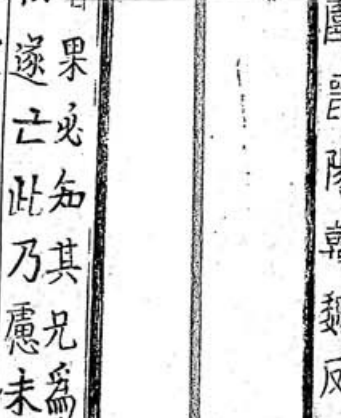 晋陽韓魏反
果必知其兄爲
遂亡此乃慮未